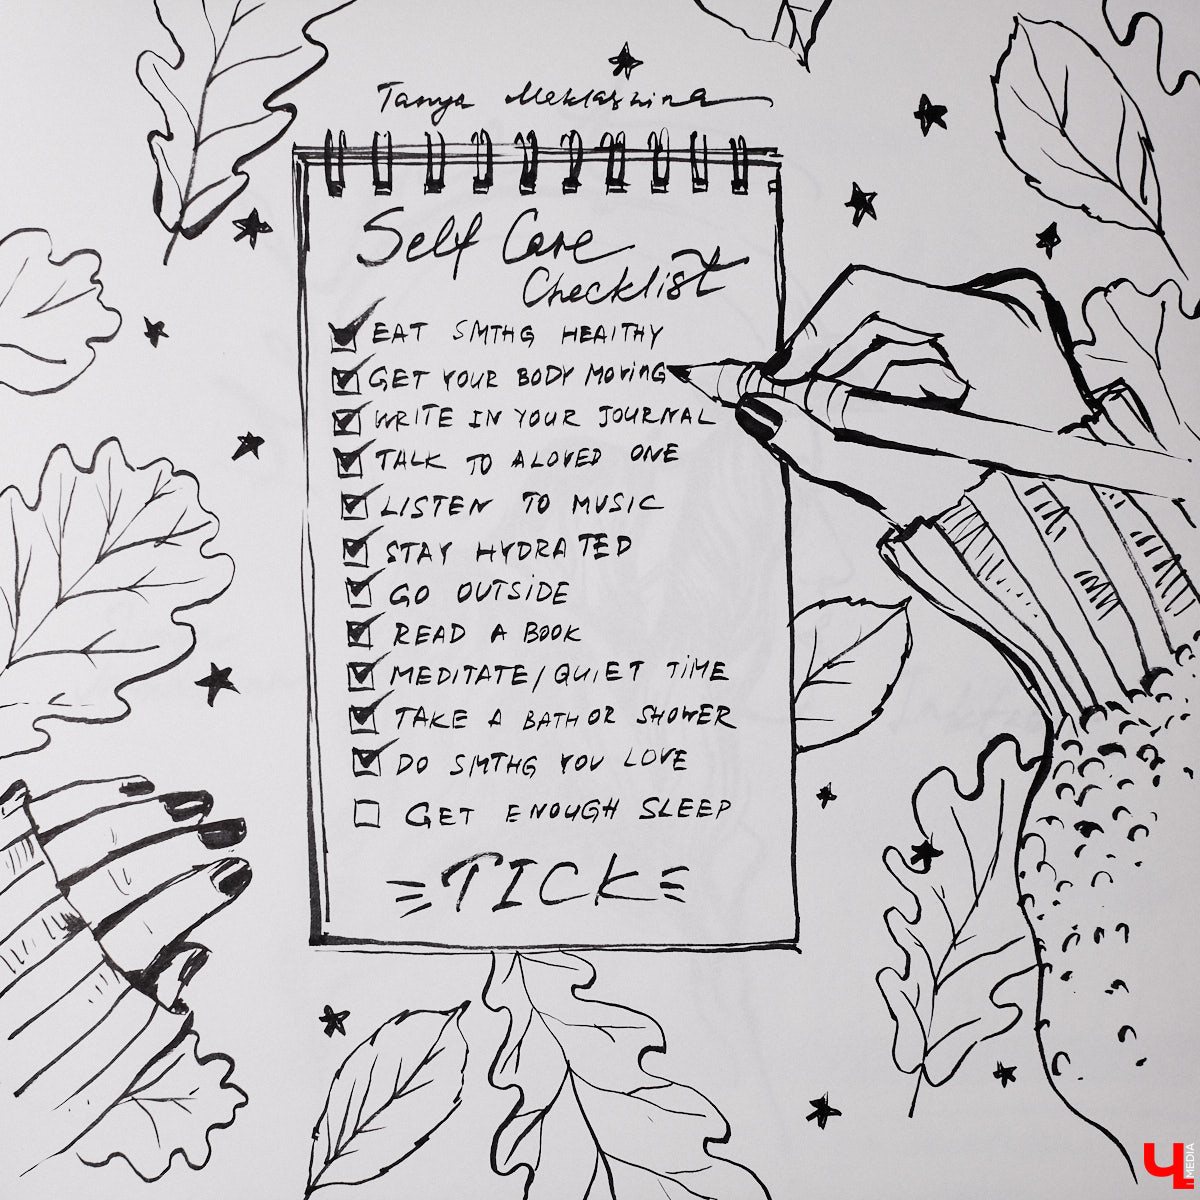 Tanya Meklashina
Self Care
Checklist
EAT SMTHG HEALTHY
GET YOUR BODY MOVING
WRITE IN YOUR JOURNAL
TALK TO A LOVED ONE
LISTEN TO MUSIC
STAY HYDRATED
GO OUTSIDE
READ A BOOK
MEDITATE/QUIET TIME
TAKE A BATH OR SHOWER
DO SMTHG YOU LOVE
GET ENOUGH SLEEP
TICK
Ч MEDIA